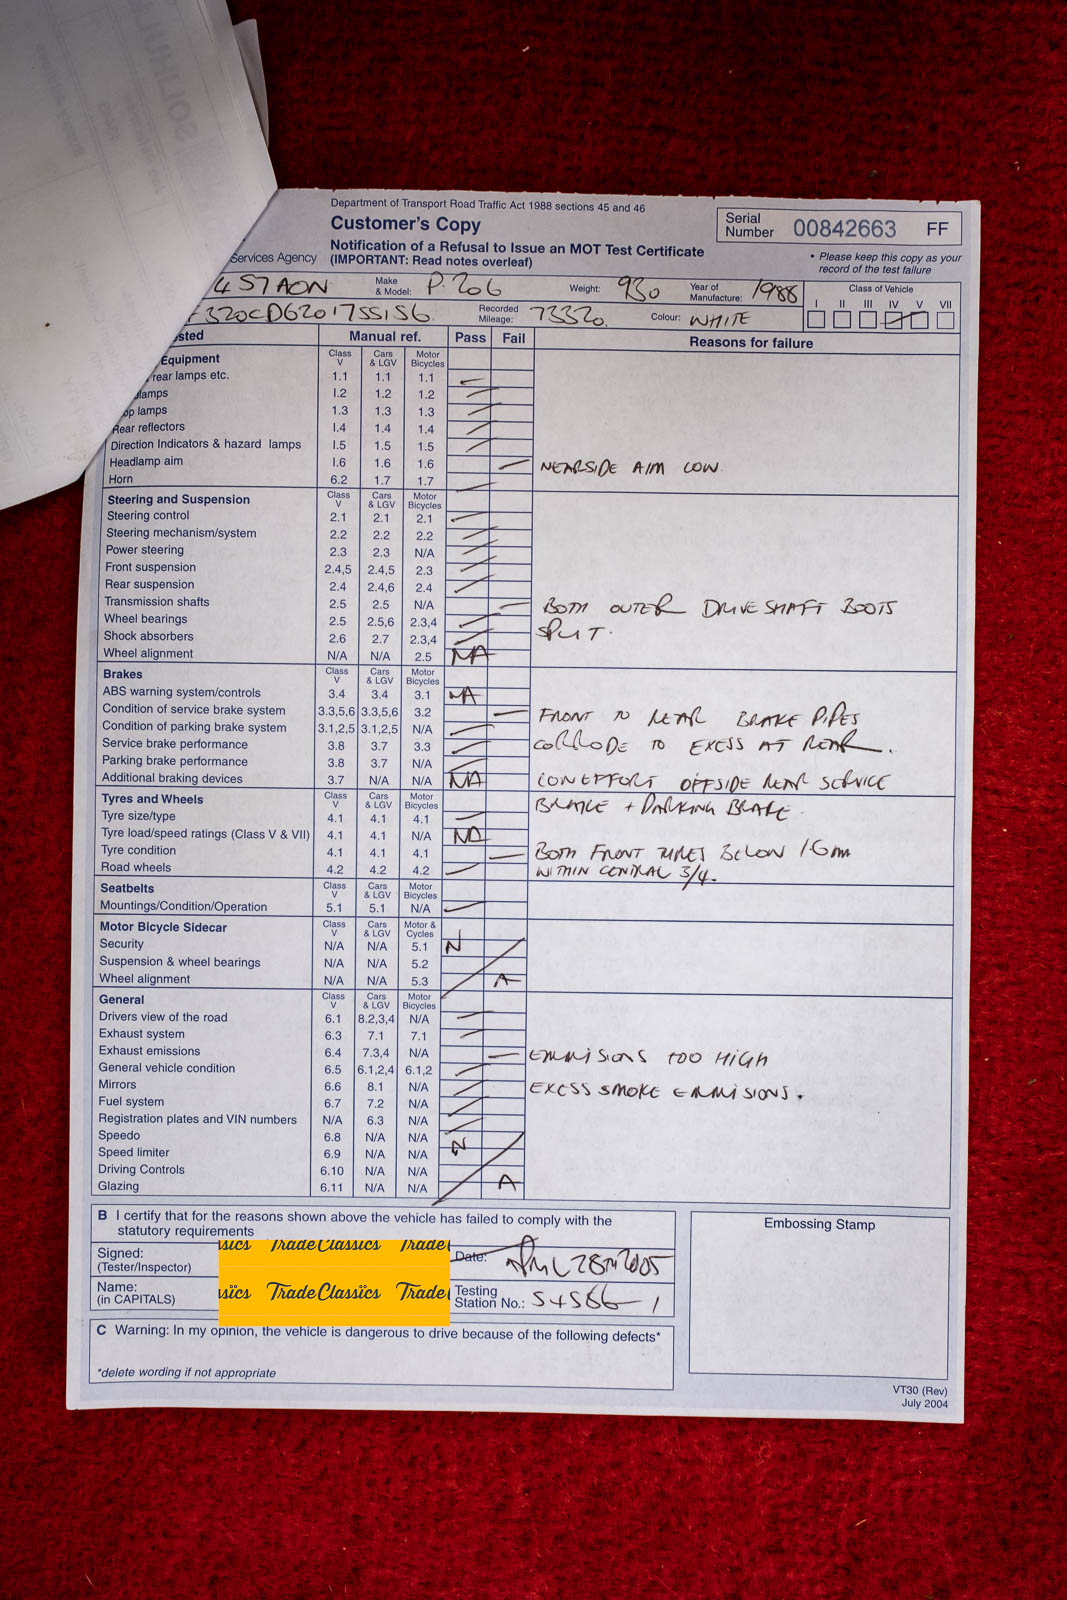 Department of Transport Road Traffic Act 1988 sections 45 and 46
Customer's Copy
Notification of a Refusal to Issue an MOT Test Certificate
Services Agency (IMPORTANT: Read notes overleaf)
Serial Number 00842663 FF
• Please keep this copy as your record of the test failure
4 STAON Make & Model: P. 206 Weight: 930 Year of Manufacture: 1988 Class of Vehicle
I II III IV V VII
F320CD6201755156 Recorded Mileage: 73320 Colour: WHITE
sted Manual ref. Pass Fail Reasons for failure
Equipment Class V Cars & LGV Motor Bicycles
rear lamps etc. 1.1 1.1 1.1
lamps 1.2 1.2 1.2
op lamps 1.3 1.3 1.3
Rear reflectors 1.4 1.4 1.4
Direction Indicators & hazard lamps 1.5 1.5 1.5
Headlamp aim 1.6 1.6 1.6 NEARSIDE AIM LOW.
Horn 6.2 1.7 1.7
Steering and Suspension Class V Cars & LGV Motor Bicycles
Steering control 2.1 2.1 2.1
Steering mechanism/system 2.2 2.2 2.2
Power steering 2.3 2.3 N/A
Front suspension 2.4,5 2.4,5 2.3
Rear suspension 2.4 2.4,6 2.4
Transmission shafts 2.5 2.5 N/A BOTH OUTER DRIVESHAFT BOOTS
Wheel bearings 2.5 2.5,6 2.3,4 SPLIT.
Shock absorbers 2.6 2.7 2.3,4
Wheel alignment N/A N/A 2.5 NA
Brakes Class V Cars & LGV Motor Bicycles
ABS warning system/controls 3.4 3.4 3.1 NA
Condition of service brake system 3.3,5,6 3.3,5,6 3.2 FRONT TO REAR BRAKE PIPES
Condition of parking brake system 3.1,2,5 3.1,2,5 N/A
Service brake performance 3.8 3.7 3.3 CORRODE TO EXESS AT REAR.
Parking brake performance 3.8 3.7 N/A
Additional braking devices 3.7 N/A N/A NA LOW EFFORT OFFSIDE REAR SERVICE
Tyres and Wheels Class V Cars & LGV Motor Bicycles BRAKE + PARKING BRAKE.
Tyre size/type 4.1 4.1 4.1
Tyre load/speed ratings (Class V & VII) 4.1 4.1 N/A NA
Tyre condition 4.1 4.1 4.1 BOTH FRONT TYRES BELOW 1.6mm
Road wheels 4.2 4.2 4.2 WITHIN CENTRAL 3/4.
Seatbelts Class V Cars & LGV Motor Bicycles
Mountings/Condition/Operation 5.1 5.1 N/A
Motor Bicycle Sidecar Class V Cars & LGV Motor & Cycles
Security N/A N/A 5.1 N
Suspension & wheel bearings N/A N/A 5.2
Wheel alignment N/A N/A 5.3 A
General Class V Cars & LGV Motor Bicycles
Drivers view of the road 6.1 8.2,3,4 N/A
Exhaust system 6.3 7.1 7.1
Exhaust emissions 6.4 7.3,4 N/A EMMISIONS TOO HIGH
General vehicle condition 6.5 6.1,2,4 6.1,2
Mirrors 6.6 8.1 N/A EXCESS SMOKE EMMISIONS.
Fuel system 6.7 7.2 N/A
Registration plates and VIN numbers N/A 6.3 N/A
Speedo 6.8 N/A N/A N
Speed limiter 6.9 N/A N/A
Driving Controls 6.10 N/A N/A
Glazing 6.11 N/A N/A A
B I certify that for the reasons shown above the vehicle has failed to comply with the
statutory requirements
Signed: (Tester/Inspector) Date: 2005
Name: (in CAPITALS) Testing Station No.:
TradeClassics Trade
TradeClassics Trade
C Warning: In my opinion, the vehicle is dangerous to drive because of the following defects*
*delete wording if not appropriate
Embossing Stamp
VT30 (Rev)
July 2004